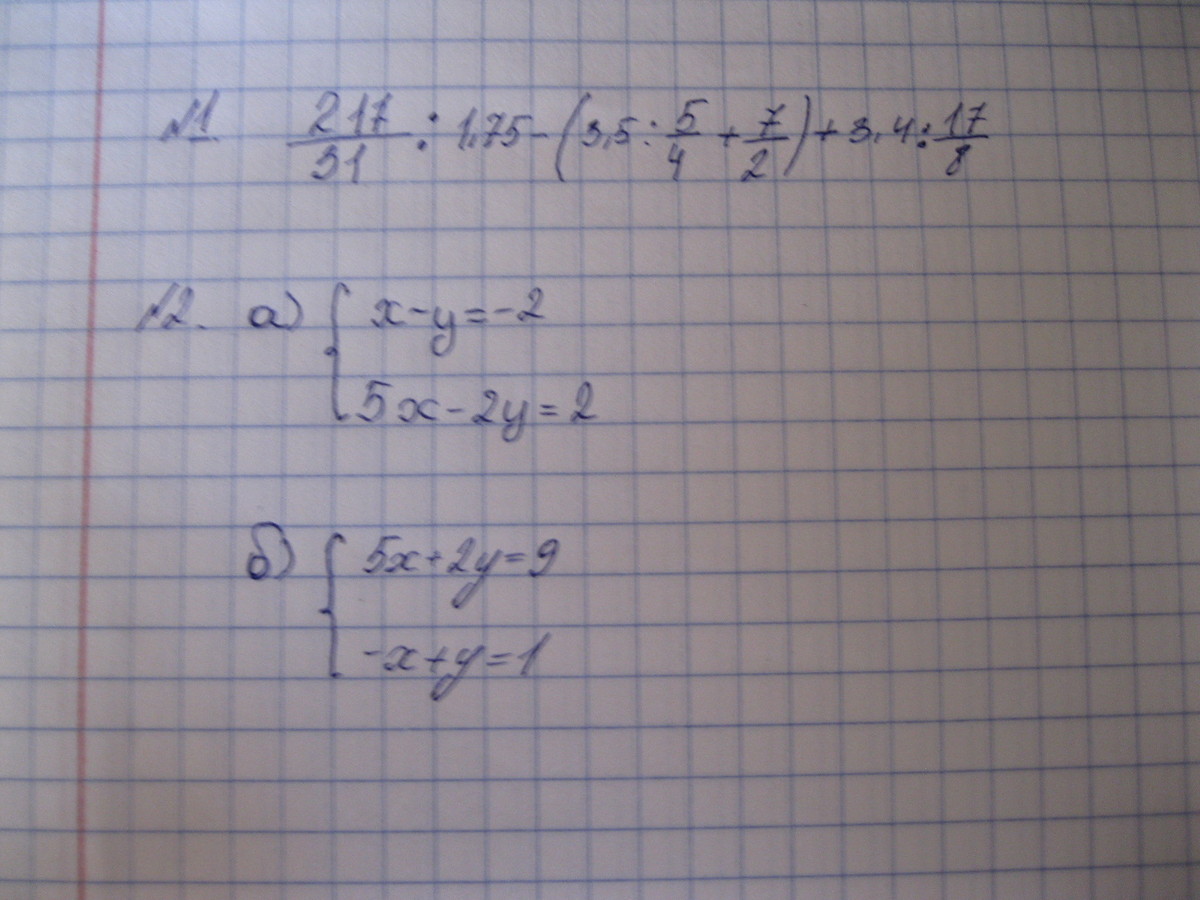 №1. 217/31 : 1,75 - (3,5 : 5/4 + 7/2) + 3,4 : 17/8
№2. а) { x - y = -2
5x - 2y = 2
б) { 5x + 2y = 9
-x + y = 1